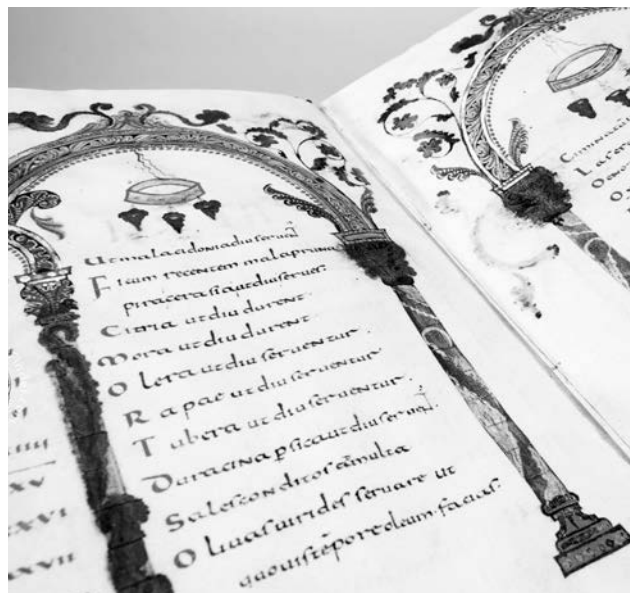 Ut mala cidonia diu seruent
Ficum recentem mala pruna
pira cerasia ut diu serues·
Citria ut diu durent·
Mora ut diu durent
Olera ut diu seruentur·
Rapae ut diu seruentur·
Tubera ut diu seruentur·
Duracina psica ut diu seruent
Sales conditos ad multa
Oliuas uirides seruare ut
quouis tēpore oleum facias·
XV
XVI
XVII